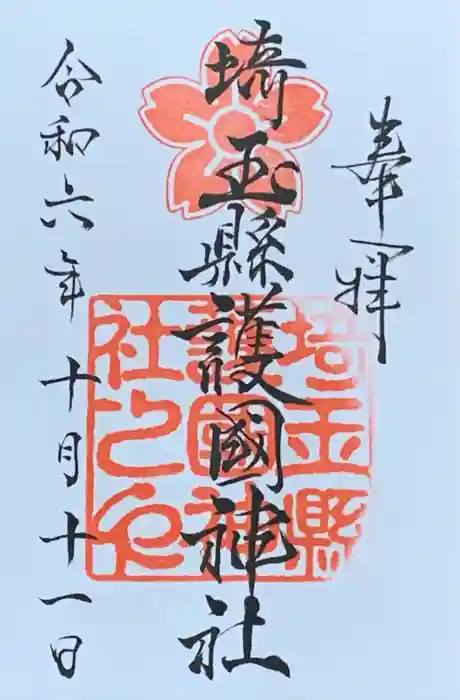 奉拝
埼玉縣護國神社
令和六年十月十一日
埼玉縣
護國神
社之印